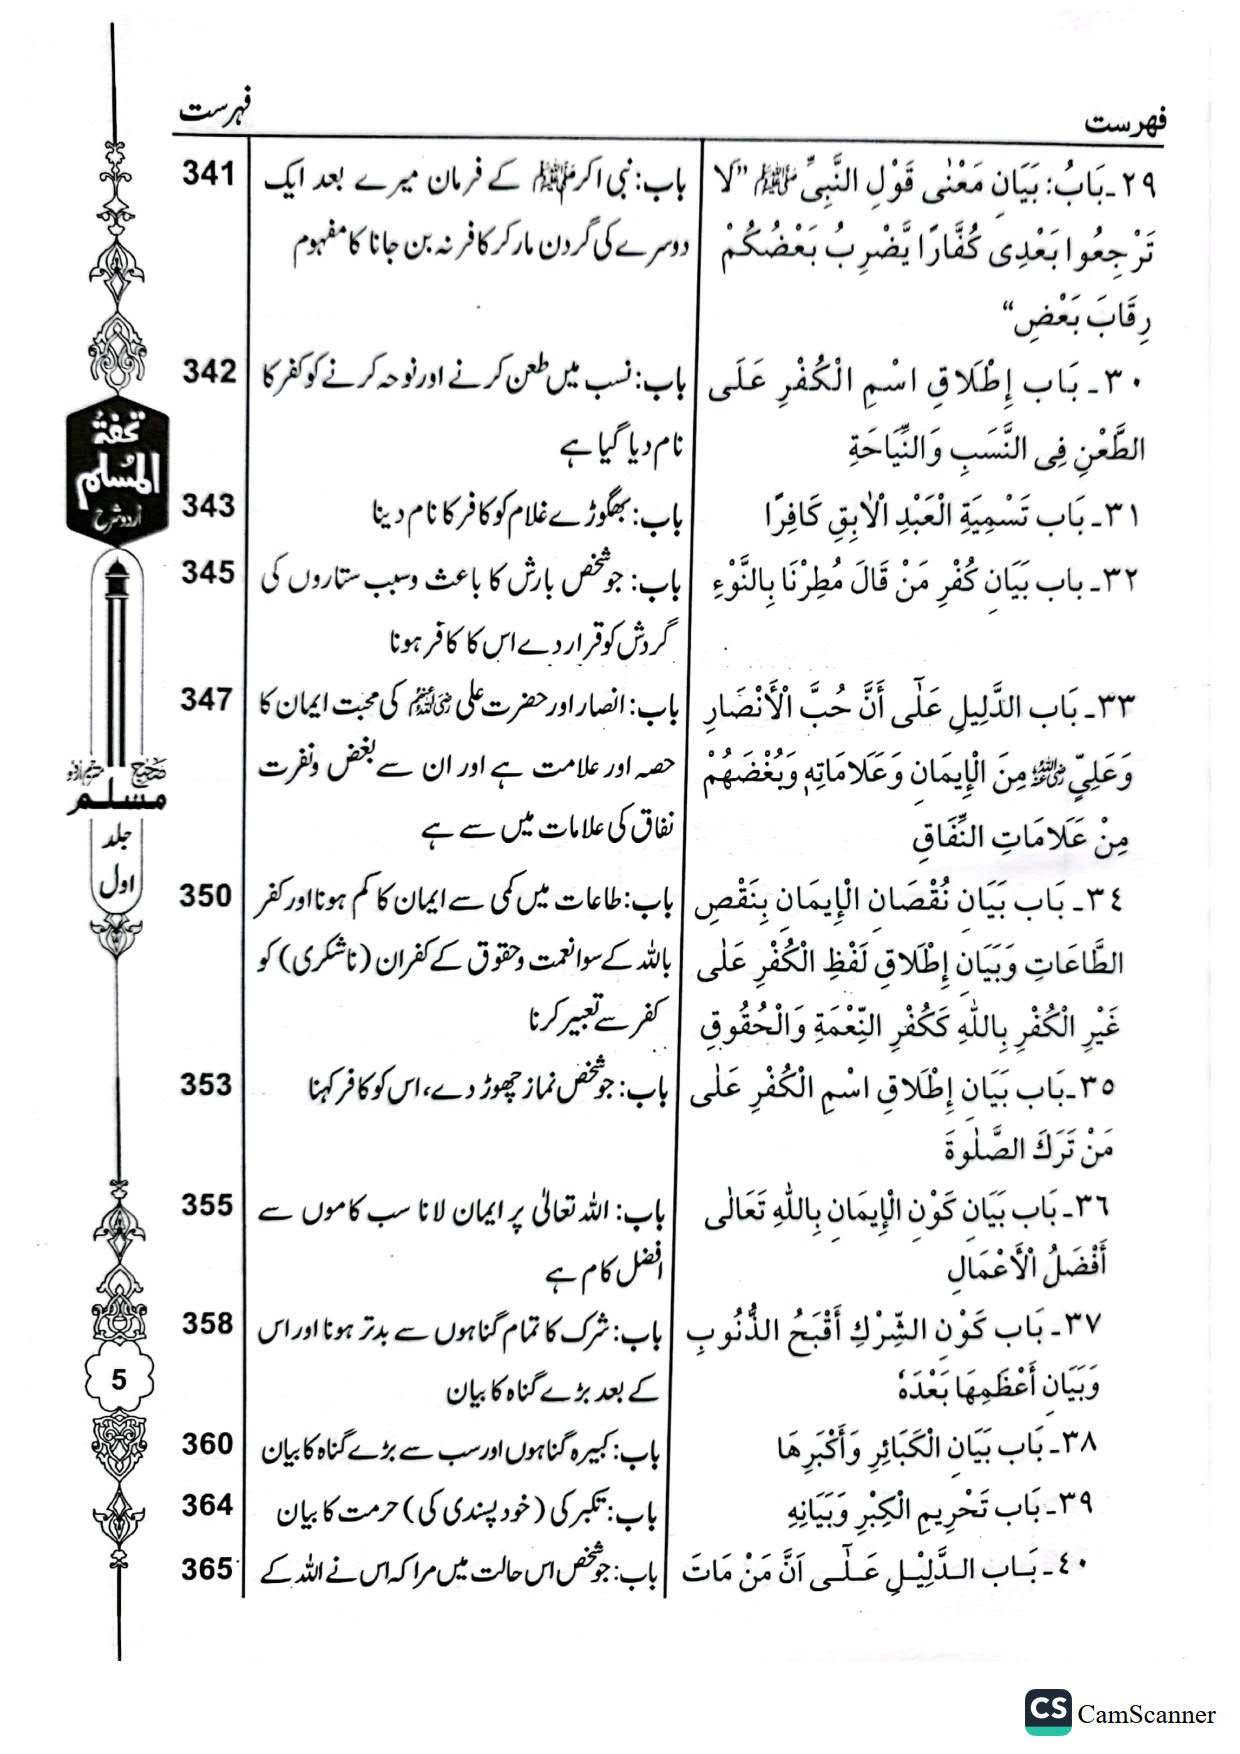 فهرست
فہرست
٢٩ـ بَابُ: بَيَانِ مَعْنٰى قَوْلِ النَّبِىِّ ﷺ ”لَا
باب: نبی اکرم ﷺ کے فرمان میرے بعد ایک
341
تَرْجِعُوا بَعْدِى كُفَّارًا يَّضْرِبُ بَعْضُكُمْ
دوسرے کی گردن مار کر کافر نہ بن جانا کا مفہوم
رِقَابَ بَعْضٍ“
٣٠ـ بَاب إِطْلَاقِ اسْمِ الْكُفْرِ عَلَى
باب: نسب میں طعن کرنے اور نوحہ کرنے کو کفر کا
342
الطَّعْنِ فِى النَّسَبِ وَالنِّيَاحَةِ
نام دیا گیا ہے
٣١ـ بَاب تَسْمِيَةِ الْعَبْدِ الْاٰبِقِ كَافِرًا
باب: بھگوڑے غلام کو کافر کا نام دینا
343
٣٢ـ باب بَيَانِ كُفْرِ مَنْ قَالَ مُطِرْنَا بِالنَّوْءِ
باب: جو شخص بارش کا باعث وسبب ستاروں کی
345
گردش کو قرار دے اس کا کافر ہونا
٣٣ـ بَاب الدَّلِيلِ عَلٰٓى أَنَّ حُبَّ الْأَنْصَارِ
باب: انصار اور حضرت علی رضی اللہ عنہ کی محبت ایمان کا
347
وَعَلِىٍّ رضی اللہ عنہ مِنَ الْإِيمَانِ وَعَلَامَاتِهٖ وَبُغْضَهُمْ
حصہ اور علامت ہے اور ان سے بغض ونفرت
مِنْ عَلَامَاتِ النِّفَاقِ
نفاق کی علامات میں سے ہے
٣٤ـ بَاب بَيَانِ نُقْصَانِ الْإِيمَانِ بِنَقْصِ
باب: طاعات میں کمی سے ایمان کا کم ہونا اور کفر
350
الطَّاعَاتِ وَبَيَانِ إِطْلَاقِ لَفْظِ الْكُفْرِ عَلٰى
باللہ کے سوا نعمت وحقوق کے کفران (ناشکری) کو
غَيْرِ الْكُفْرِ بِاللّٰهِ كَكُفْرِ النِّعْمَةِ وَالْحُقُوقِ
کفر سے تعبیر کرنا
٣٥ـ بَاب بَيَانِ إِطْلَاقِ اسْمِ الْكُفْرِ عَلٰى
باب: جو شخص نماز چھوڑ دے، اس کو کافر کہنا
353
مَنْ تَرَكَ الصَّلٰوةَ
٣٦ـ بَاب بَيَانِ كَوْنِ الْإِيمَانِ بِاللّٰهِ تَعَالٰى
باب: اللہ تعالیٰ پر ایمان لانا سب کاموں سے
355
أَفْضَلُ الْأَعْمَالِ
افضل کام ہے
٣٧ـ بَاب كَوْنِ الشِّرْكِ أَقْبَحُ الذُّنُوبِ
باب: شرک کا تمام گناہوں سے بدتر ہونا اور اس
358
وَبَيَانِ أَعْظَمِهَا بَعْدَهٗ
کے بعد بڑے گناہ کا بیان
٣٨ـ بَاب بَيَانِ الْكَبَائِرِ وَأَكْبَرِهَا
باب: کبیرہ گناہوں اور سب سے بڑے گناہ کا بیان
360
٣٩ـ بَاب تَحْرِيمِ الْكِبْرِ وَبَيَانِهِ
باب: تکبر کی (خود پسندی کی) حرمت کا بیان
364
٤٠ـ بَاب الدَّلِيْلِ عَلٰٓى اَنَّ مَنْ مَاتَ
باب: جو شخص اس حالت میں مرا کہ اس نے اللہ کے
365
تحفۃ
المسلم
اردو شرح
صحیح
مسلم
جلد
اول
5
CS CamScanner